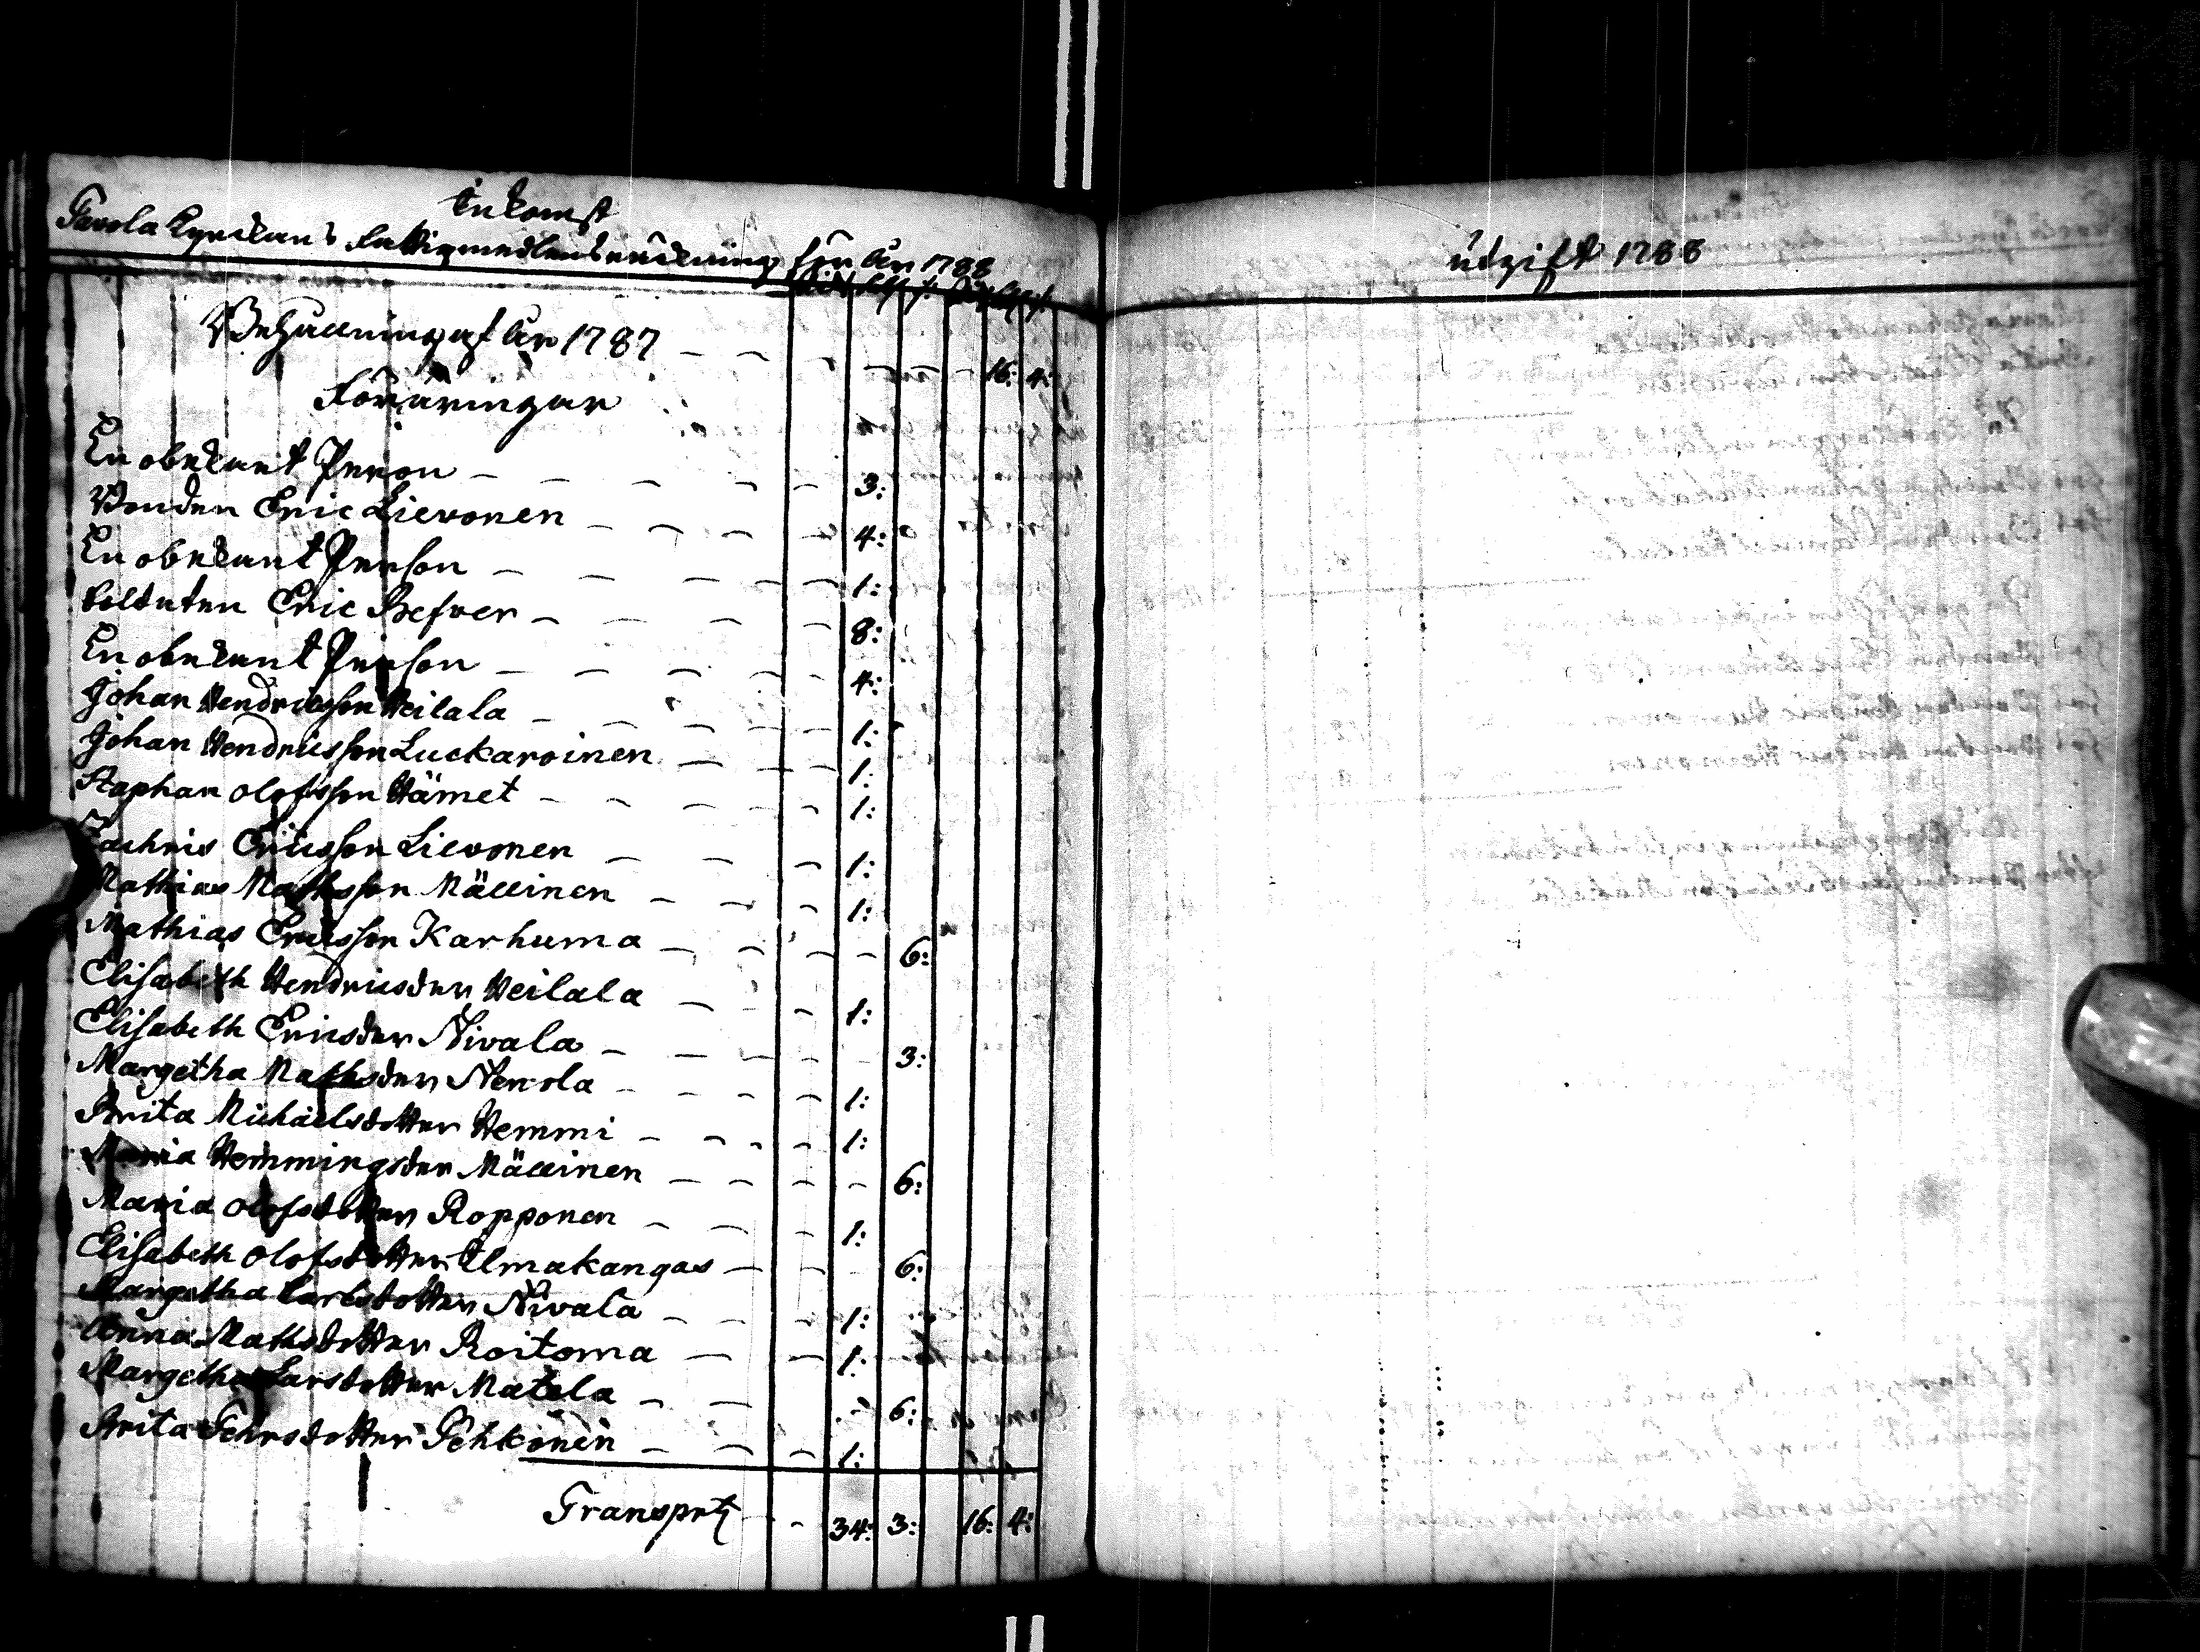 Inkomst
Pavola Kyrckans Fattigmedlens räckning för år 1788
Behållning af år 1787 16: 4:
Föräringar
En obekant Person 3:
Bonden Eric Lievonen 4:
En obekant Person 1:
Soldaten Eric Befver 8:
En obekant Person 4:
Johan Hendricsson Heilala 1:
Johan Hendricsson Luckaroinen 1:
Staphan Olofsson Hämet 1:
Zachris Ericsson Lievonen 1:
Mathias Mathsson Mällinen 1:
Mathias Ericsson Karhuma 6:
Elisabeth Hendricsder Heilala 1:
Elisabeth Ericsder Nivala 3:
Margetha Mathsder Nevola 1:
Brita Michaelsdotter Hemmi 1:
Maria Hemmingsder Mällinen 6:
Maria Olofsdotter Ropponen 1:
Elisabeth Olofsdotter Ilmakangas 6:
Margetha Carlsdotter Nivala 1:
Anna Mathsdotter Roitoma 1:
Margetha Larsdotter Matela 6:
Brita Pehrsdotter Pehkonen 1:
Transprt 34: 3: 16: 4:
Udgift 1788